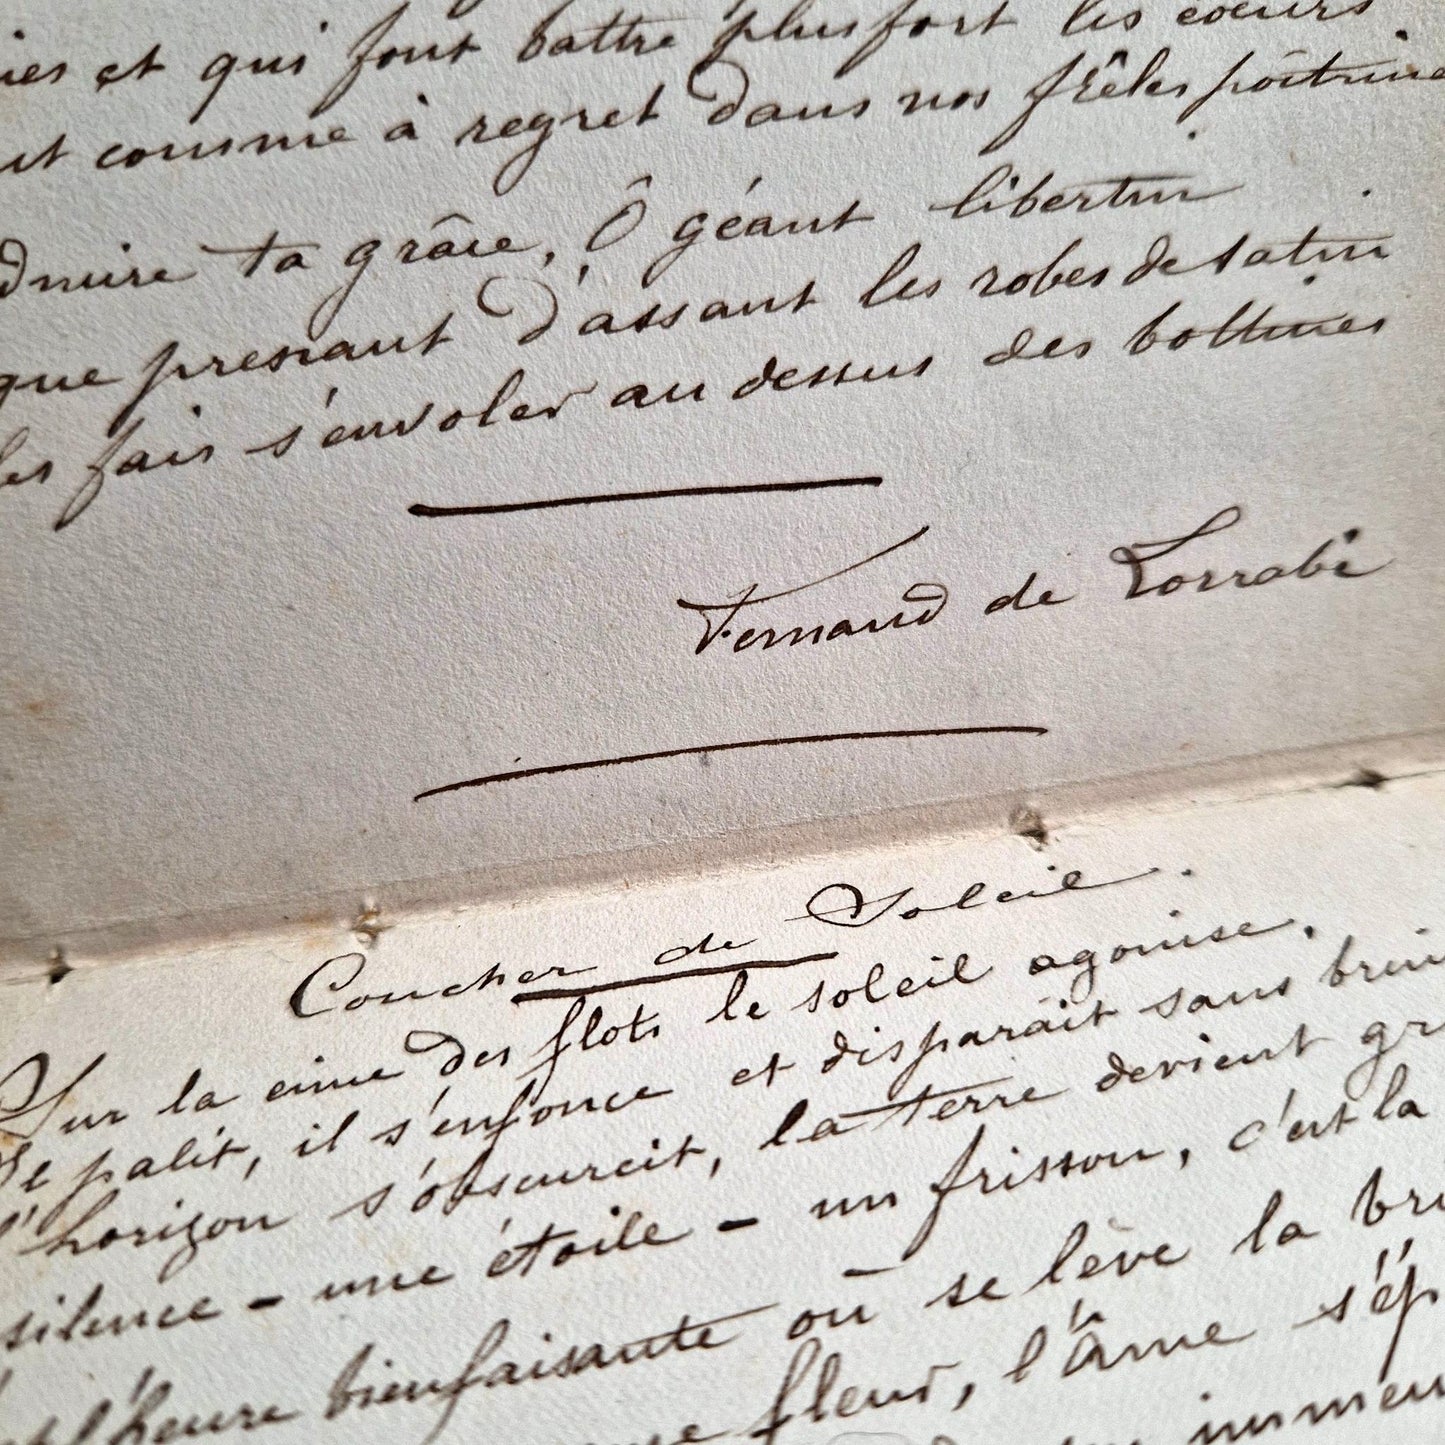 et qui font battre plus fort les coeurs
comme à regret dans nos frêles
ta grâce, Ô géant libertin
que d'assant les robes de satin
fais s'envoler au dessus des bottines
Fernand de Lorrabè
Coucher de Soleil.
Sur la cime des flots le soleil agonise.
palit, il s'enfonce et disparaît sans
l'horizon s'obscurcit, la terre devient
silence - une étoile - un frisson, c'est la
l'heure bienfaisante où se lève la
fleur, l'âme